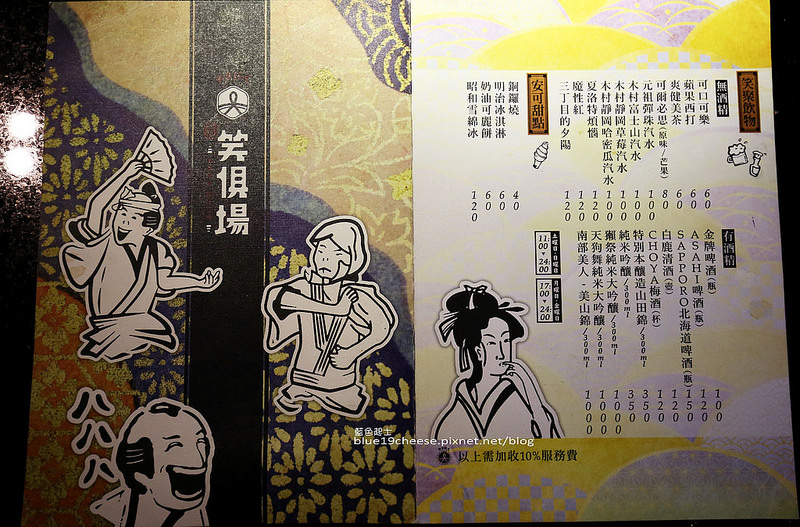 笑俱場
ハハハ
笑聚飲物
無酒精
可口可樂 60
蘋果西打 60
爽健美茶 60
可爾必思(原味/芒果) 80
元祖彈珠汽水 100
木村富士山汽水 100
木村靜岡草莓汽水 100
木村靜岡哈密瓜汽水 100
夏洛特煩惱 120
魔性紅 120
三丁目的夕陽 120
安可甜點
銅鑼燒 40
明治冰淇淋 60
奶油可麗餅 60
昭和雪綿冰 120
有酒精
金牌啤酒(瓶) 100
ASAHI啤酒(瓶) 120
SAPPORO北海道啤酒(瓶) 150
白鹿清酒(壺) 120
CHOYA梅酒(杯) 120
特別本釀造山田錦/300ml 350
純米吟釀/300ml 350
獺祭純米大吟釀/300ml 1000
天狗舞純米大吟釀/300ml 1000
南部美人-美山錦/300ml 1000
土曜日・日曜日
11:00
24:00
月曜日-金曜日
17:00
24:00
以上需加收10%服務費
藍色起士
blue19cheese.pixnet.net/blog